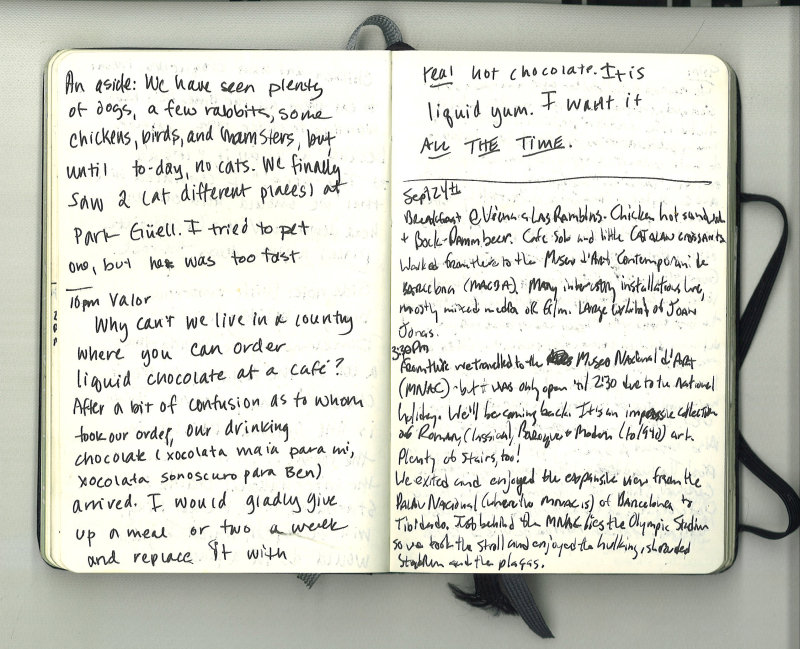 An aside: We have seen plenty
of dogs, a few rabbits, some
chickens, birds, and hamsters, but
until to-day, no cats. We finally
saw 2 (at different places) at
Park Güell. I tried to pet
one, but he was too fast
10pm Valor
Why can't we live in a country
where you can order
liquid chocolate at a café?
After a bit of confusion as to whom
took our order, our drinking
chocolate (xocolata maia para mi,
xocolata sonoscuro para Ben)
arrived. I would gladly give
up a meal or two a week
and replace it with
real hot chocolate. It is
liquid yum. I want it
ALL THE TIME.
Sept 24th
Breakfast @ Viena & Las Ramblas. Chicken hot sandwich
+ Bock-Damm beer. Cafe Solo and little CATALAN CROISSANTS
Walked from there to the Museo d'Art Contemporani de
Barcelona (MACBA). Many interesting installations here,
mostly mixed media or film. Large exhibit of Joan
Jonas.
3:30pm
From there we travelled to the Museo Nacional d'Art
(MNAC) - but it was only open 'til 2:30 due to the National
holiday. We'll be coming back. It is an impressive collection
of Roman, Classical, Baroque + Modern (to 1940) art.
Plenty of stairs, too!
We exited and enjoyed the expansive view from the
Palau Nacional (where the MNAC is) of Barcelona to
Tibidado. Just behind the MNAC lies the Olympic Stadium
so we took the stroll and enjoyed the hulking, shrouded
Stadium and the plazas.